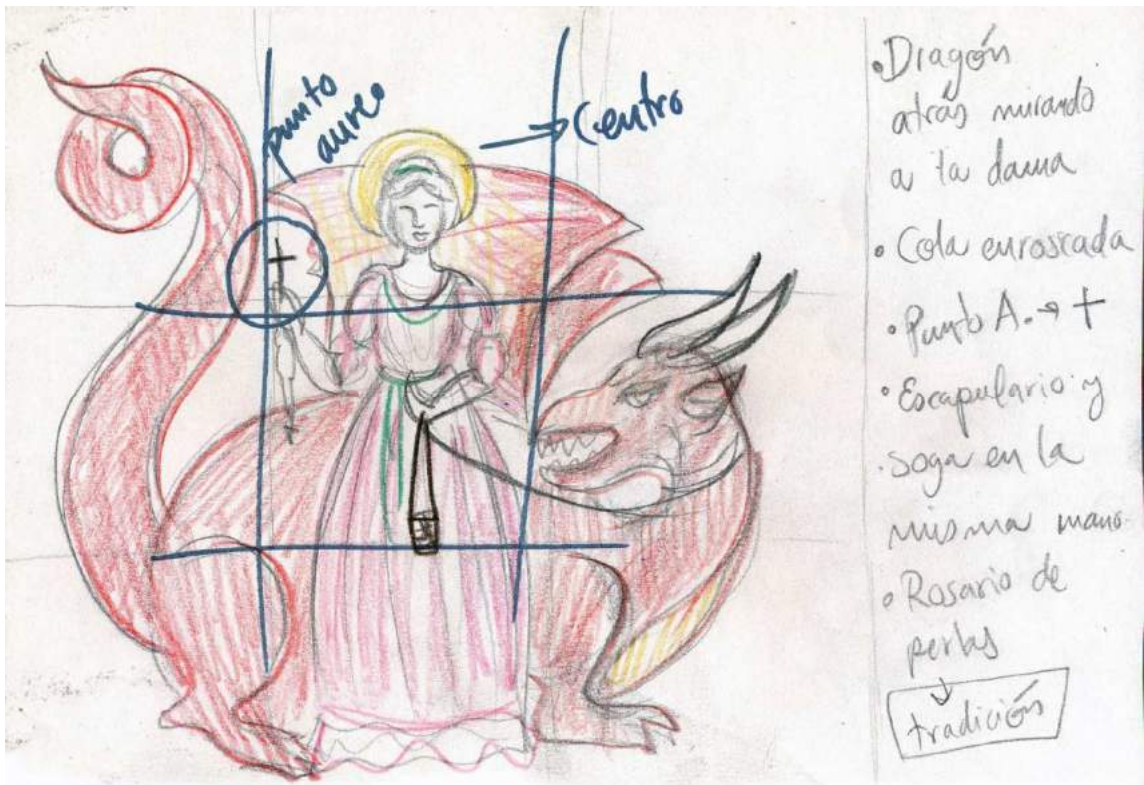 punto
aureo
→ Centro
• Dragón
atrás mirando
a la dama
• Cola enroscada
• Punto A. → +
• Escapulario y
soga en la
misma mano
• Rosario de
perlas
↓
tradición